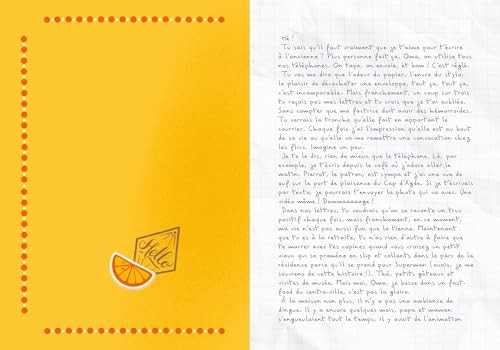 Hello
Hé !
Tu sais qu'il faut vraiment que je t'aime pour t'écrire
à l'ancienne ? Plus personne fait ça, Oma, on utilise tous
nos téléphones. On tape, on envoie, et bam ! C'est réglé.
Tu vas me dire que l'odeur du papier, l'encre du stylo,
le plaisir de décacheter une enveloppe, tout ça, tout ça,
c'est incomparable. Mais franchement, un coup sur trois
tu reçois pas mes lettres et tu crois que je t'ai oubliée.
Sans compter que ma factrice doit avoir des hémorroïdes.
Tu verrais la tronche qu'elle fait en apportant le
courrier. Chaque fois j'ai l'impression qu'elle est au bout
de sa vie ou qu'elle va me remettre une convocation chez
les flics. Imagine un peu.
Je te le dis, rien de mieux que le téléphone. Là, par
exemple, je t'écris depuis le café où j'adore aller le
matin. Pierrot, le patron, est sympa et j'ai une vue de
ouf sur le port de plaisance du Cap d'Agde. Si je t'écrivais
par texto, je pourrais t'envoyer la photo qui va avec. Une
vidéo même ! Dommaaaaaage !
Dans nos lettres, tu voudrais qu'on se raconte un truc
positif chaque fois, mais franchement, en ce moment,
ma vie n'est pas aussi fun que la tienne. Maintenant
que tu es à la retraite, tu n'as rien d'autre à faire que
te marrer avec tes copines quand vous croisez un petit
vieux qui se promène en slip et collants dans le parc de la
résidence parce qu'il se prend pour Superman (ouais, je me
souviens de cette histoire !). Thé, petits gâteaux et
visites de musée. Mais moi, Oma, je bosse dans un fast-
food du centre-ville, c'est pas la gloire.
À la maison non plus, il n'y a pas une ambiance de
dingue. Il y a encore quelques mois, papa et maman
s'engueulaient tout le temps, il y avait de l'animation